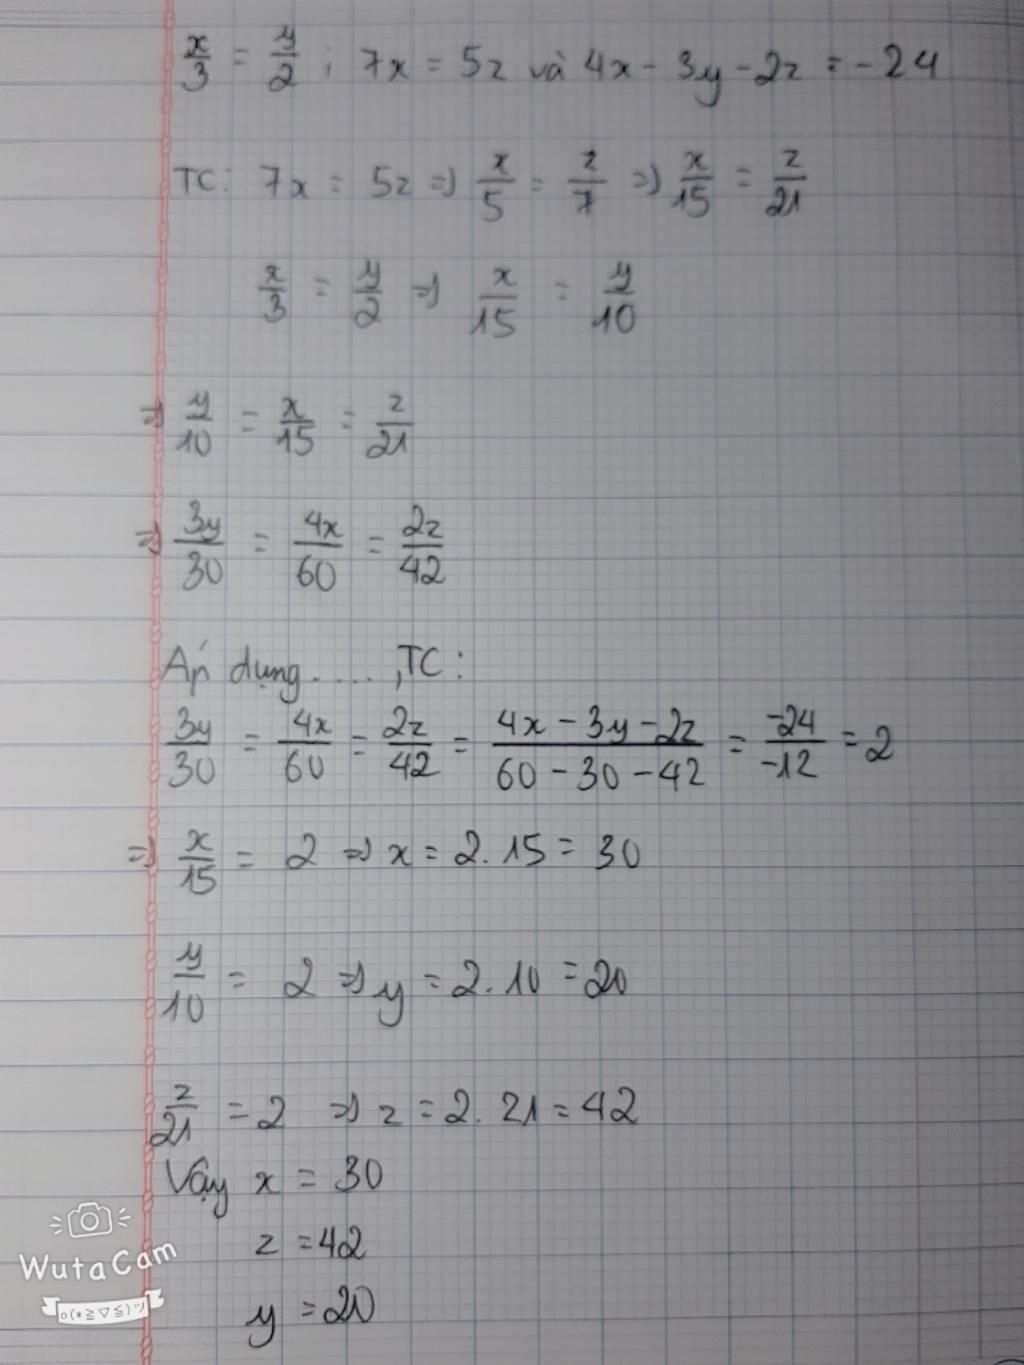 x/3 = y/2 ; 7x = 5z và 4x - 3y - 2z = -24
TC: 7x = 5z => x/5 = z/7 => x/15 = z/21
x/3 = y/2 => x/15 = y/10
=> y/10 = x/15 = z/21
=> 3y/30 = 4x/60 = 2z/42
Áp dụng....,TC:
3y/30 = 4x/60 = 2z/42 = (4x - 3y - 2z)/(60 - 30 - 42) = -24/-12 = 2
=> x/15 = 2 => x = 2.15 = 30
y/10 = 2 => y = 2.10 = 20
z/21 = 2 => z = 2.21 = 42
Vậy x = 30
z = 42
y = 20
WutaCam
o(*≧▽≦)ツ